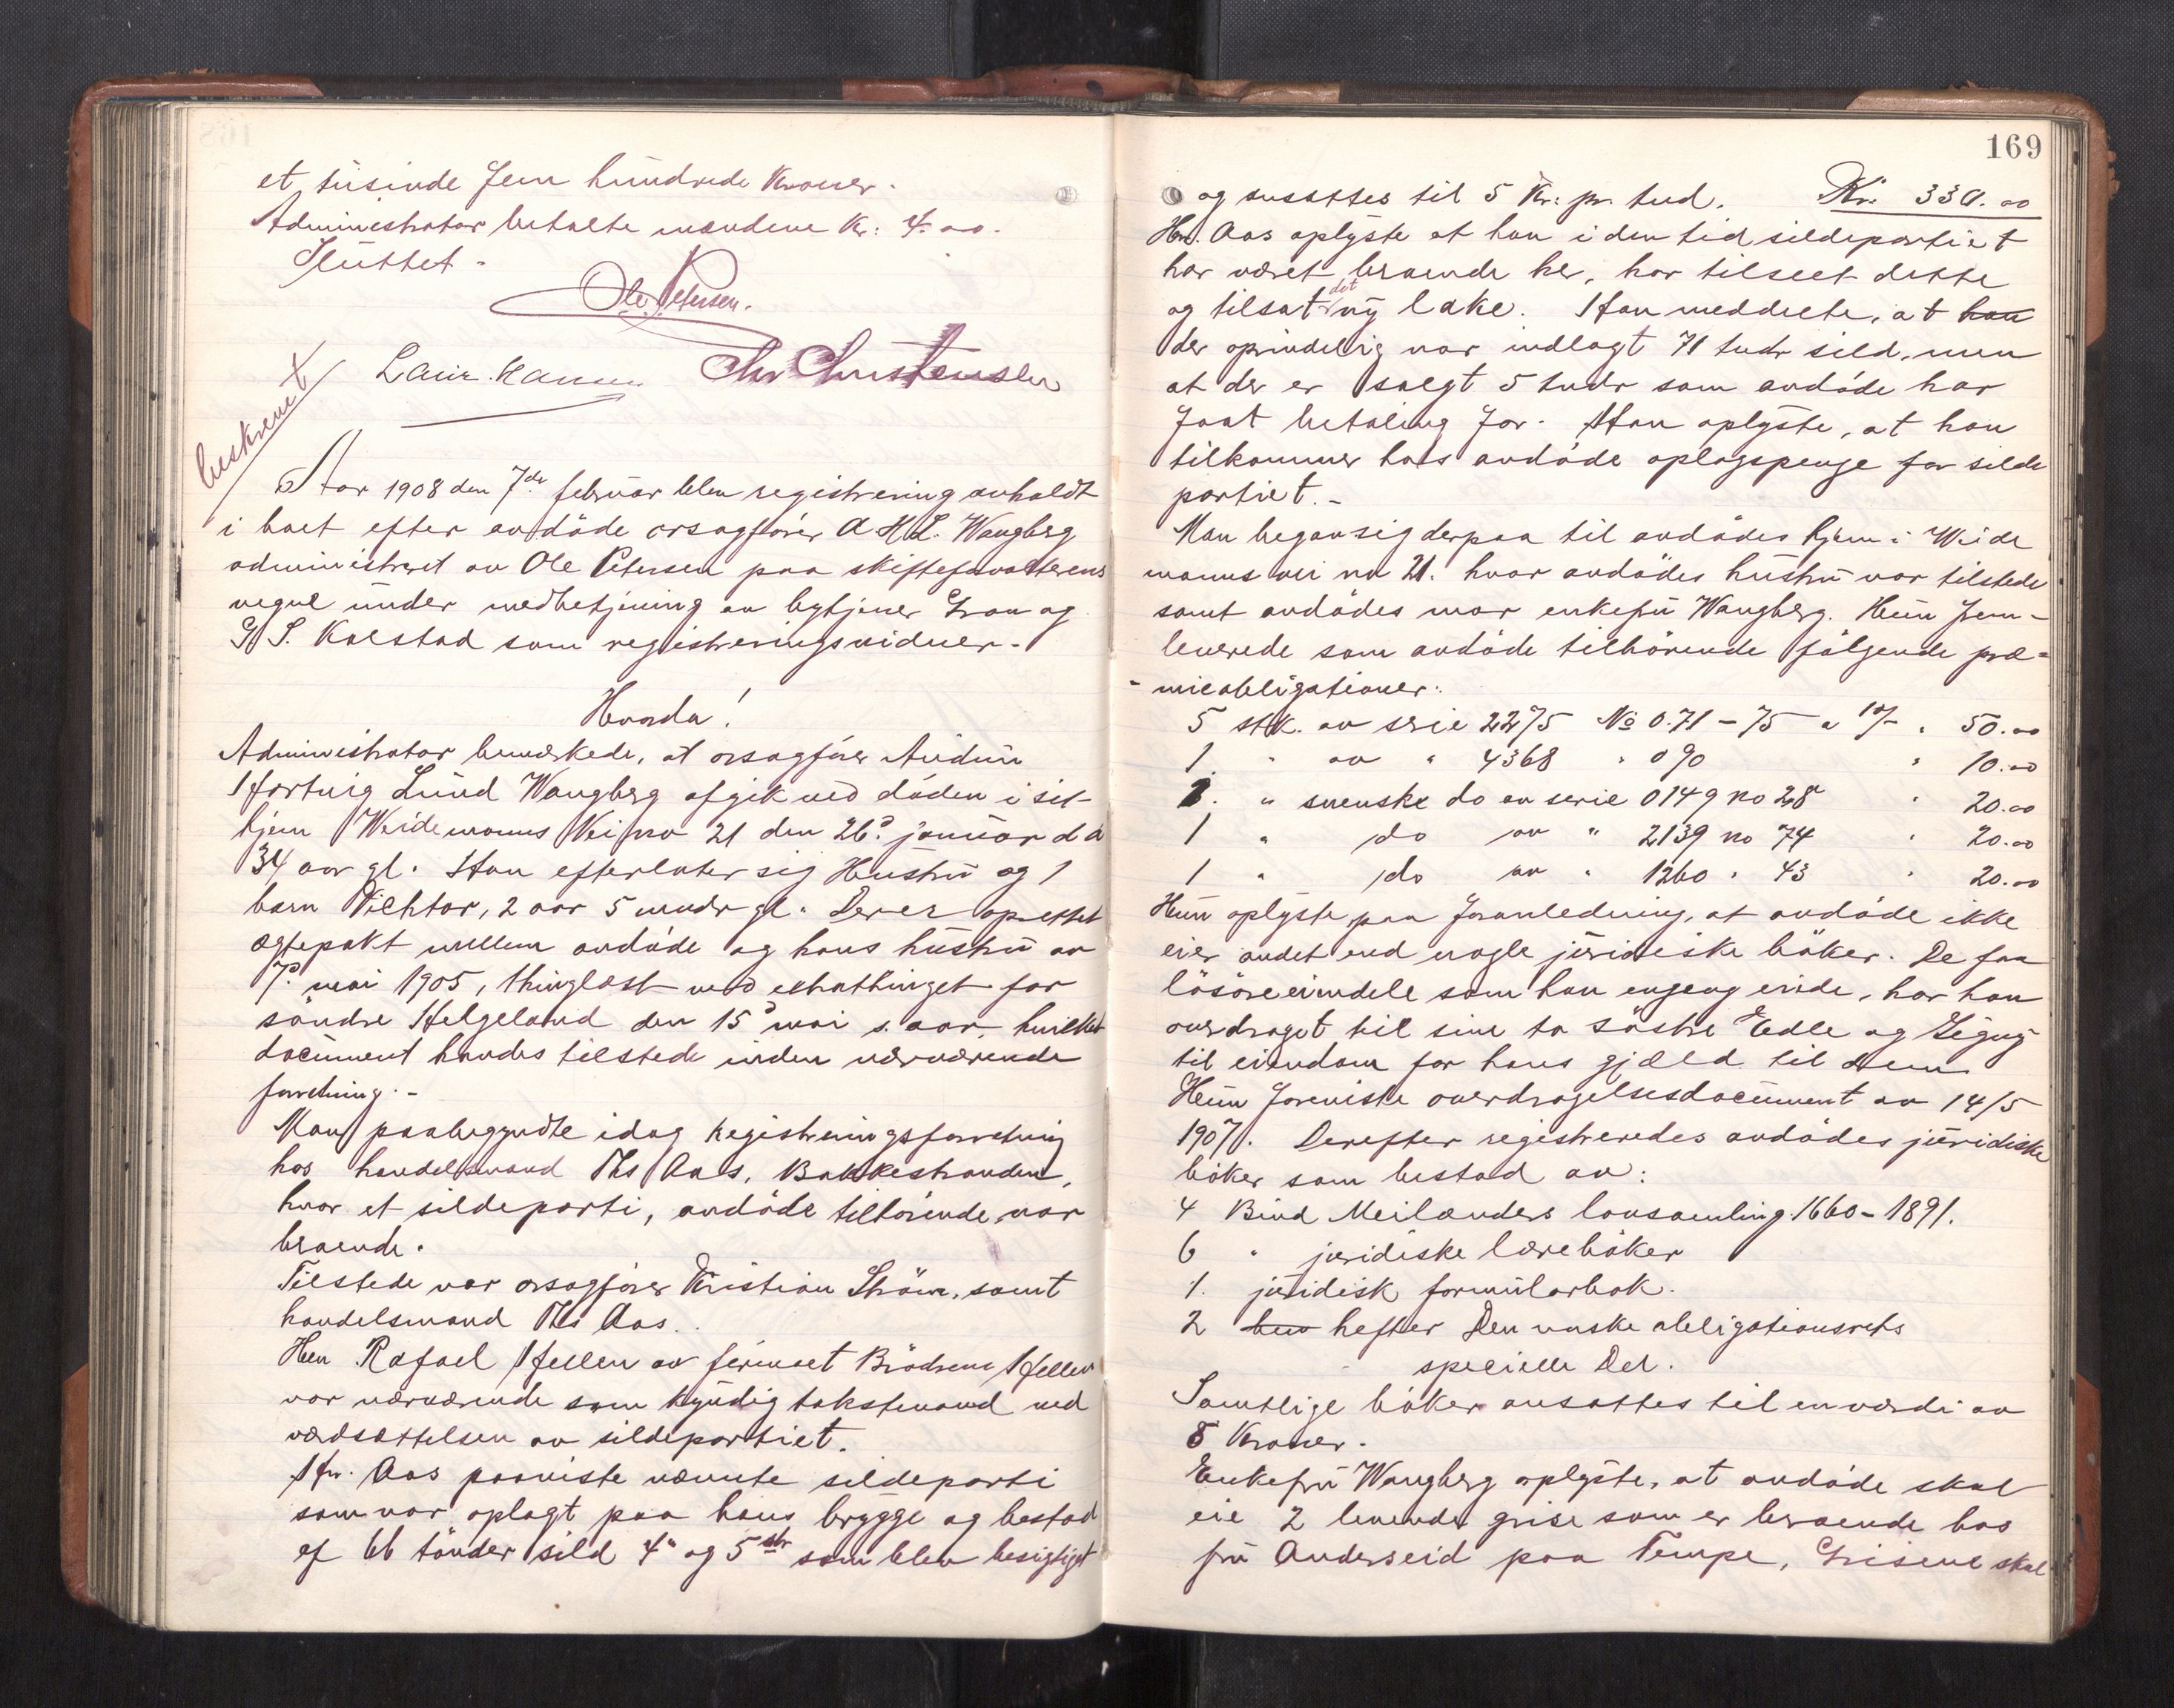 et tusinde fem hundrede Kroner.
Administrator betalte mændene Kr: 4.00.
Sluttet.
Ole Petersen.
Laur. Chr Christensen
beskrevet
Aar 1908 den 7de februar blev registrering avholdt
i boet efter avdöde orsagförer A H L. Wangberg
administreret av Ole Petersen paa skifteforvalterens
vegne under medbetjening av bytjener Gran og
G S. Kolstad som registreringsvidner.
Hvorda!
Administrator bemerkede, at orsagförer Audun
Hartvig Lund Wangberg afgik ved döden i sit
hjem Weidemanns Vei no 21 den 26d januar d a
34 aar gl. Han efterlater sig Hustru og 1
barn Vichtor, 2 aar 5 mndr gl. Der er oprettet
ægtepakt mellem avdöde og hans hustru av
7d mai 1905, thinglæst ved extrathinget for
söndre Helgeland den 15d mai s. aar, hvilket
document havdes tilstede under nærværende
forretning.-
Man paabegyndte idag Registreringsforretning
hos handelsmand Ths Aas, Bakkestranden,
hvor et sildeparti, avdöde tilhörende, var
beroende.
Tilstede var orsagförer Kristian Ström, samt
handelsmand Ths Aas.
Herr Rafael Hellen av firmaet Brödrene Hellen
var nærværende som kyndig takstmand ved
værdsættelsen av sildepartiet.
Hr. Aas paaviste nævnte sildeparti
som var oplagt paa hans brygge og bestod
af 66 tönder sild 4" og 5str som blev besigtiget
169
og ansattes til 5 Kr: pr. tnd. Kr. 330.00
Hr. Aas oplyste at han i den tid sildepartiet
har været beroende her, har tilseet dette
og tilsat det ny lake. Han meddelte, at han
der oprindelig var indlagt 71 tndr sild, men
at der er solgt 5 tndr som avdöde har
faat betaling for. Han oplyste, at han
tilkommer hos avdöde oplagspenge for silde
partiet.-
Man begav sig derpaa til avdödes hjem i Weide
manns vei no 21. hvor avdödes hustru var tilstede
samt avdödes mor enkefru Wangberg. Hun frem-
leverede som avdöde tilhörende fölgende præ=
-mieobligationer:
5 stk. av serie 2275 No 071-75 a 10/- " 50.00
1. " av " 4368 " 090 " 10.00
1. " svenske do av serie 0149 no 28 " 20.00
1 " do av " 2139 no 74 " 20.00
1 " do av " 1260 " 43 " 20.00
Hun oplyste paa foranledning, at avdöde ikke
eier andet end nogle juridiske böker. De faa
lösöreeiendele som han engang eiede, har han
overdraget til sine to söstre Edle og Signy
til eiendom for hans gjæld til dem.
Hun foreviste overdragelsesdocument av 14/5
1907. Derefter registreredes avdödes juridiske
böker som bestod av:
4 Bind Meilænders lovsamling 1660-1891.
6 " juridiske lærebøker
1. juridisk formularbok.
2 hefter Den norske obligationsrets
specielle Del.
Samtlige böker ansattes til en værdi av
8 Kroner.
Enkefru Wangberg oplyste, at avdöde skal
eie 2 levende grise som er beroende hos
fru Anderseid paa Tempe, Grisene skal